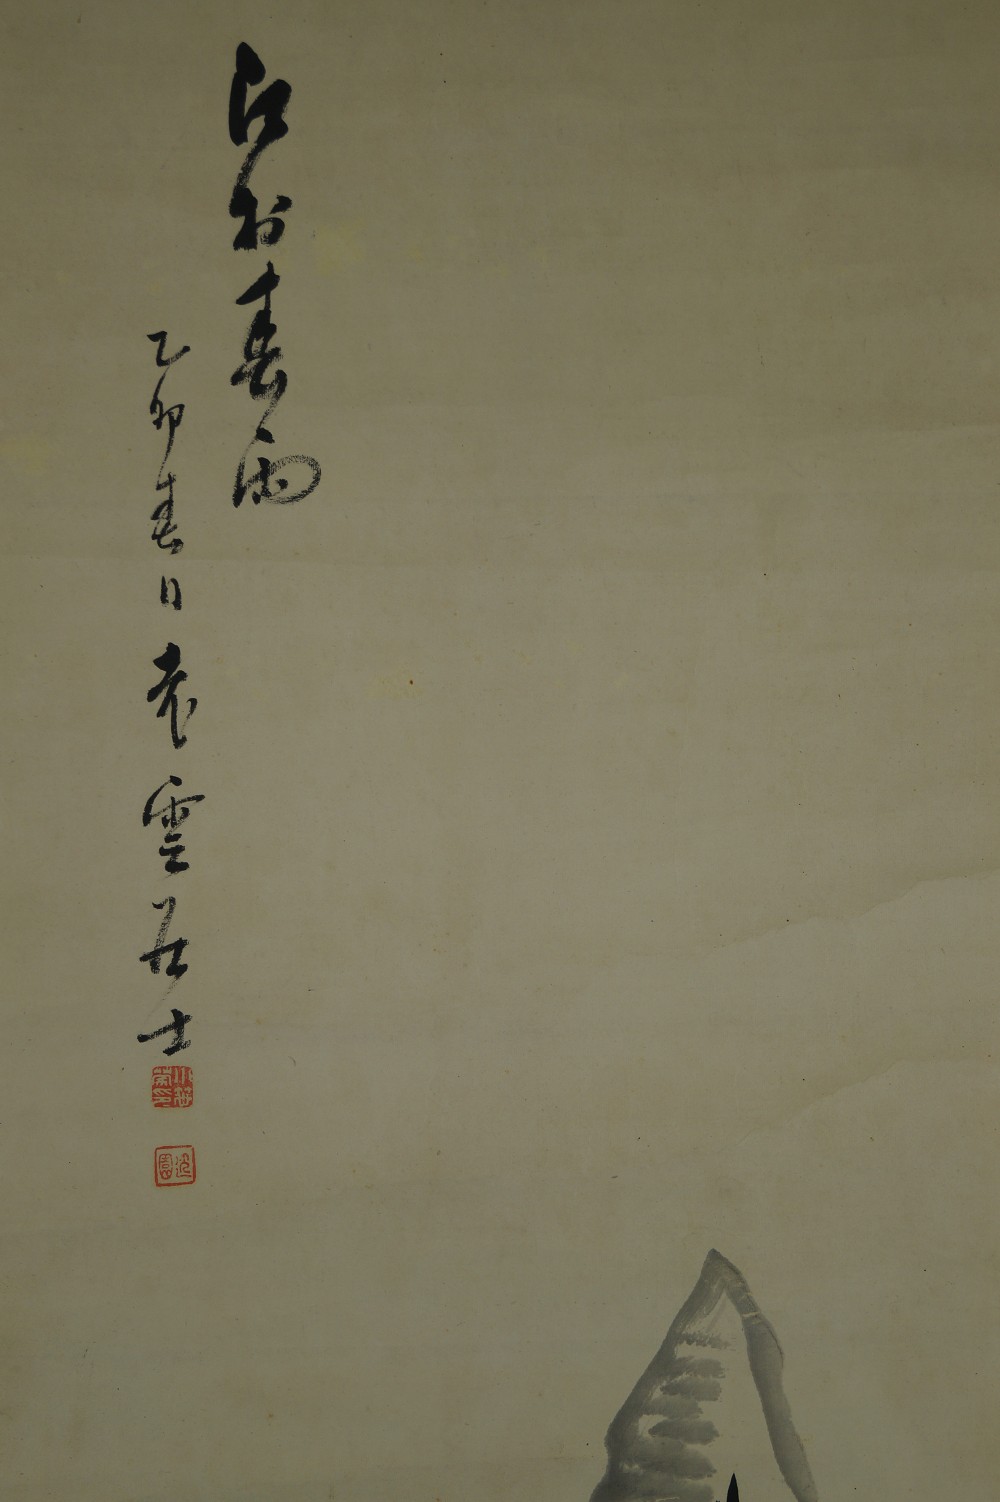 江村春雨
乙卯春日老雲居士